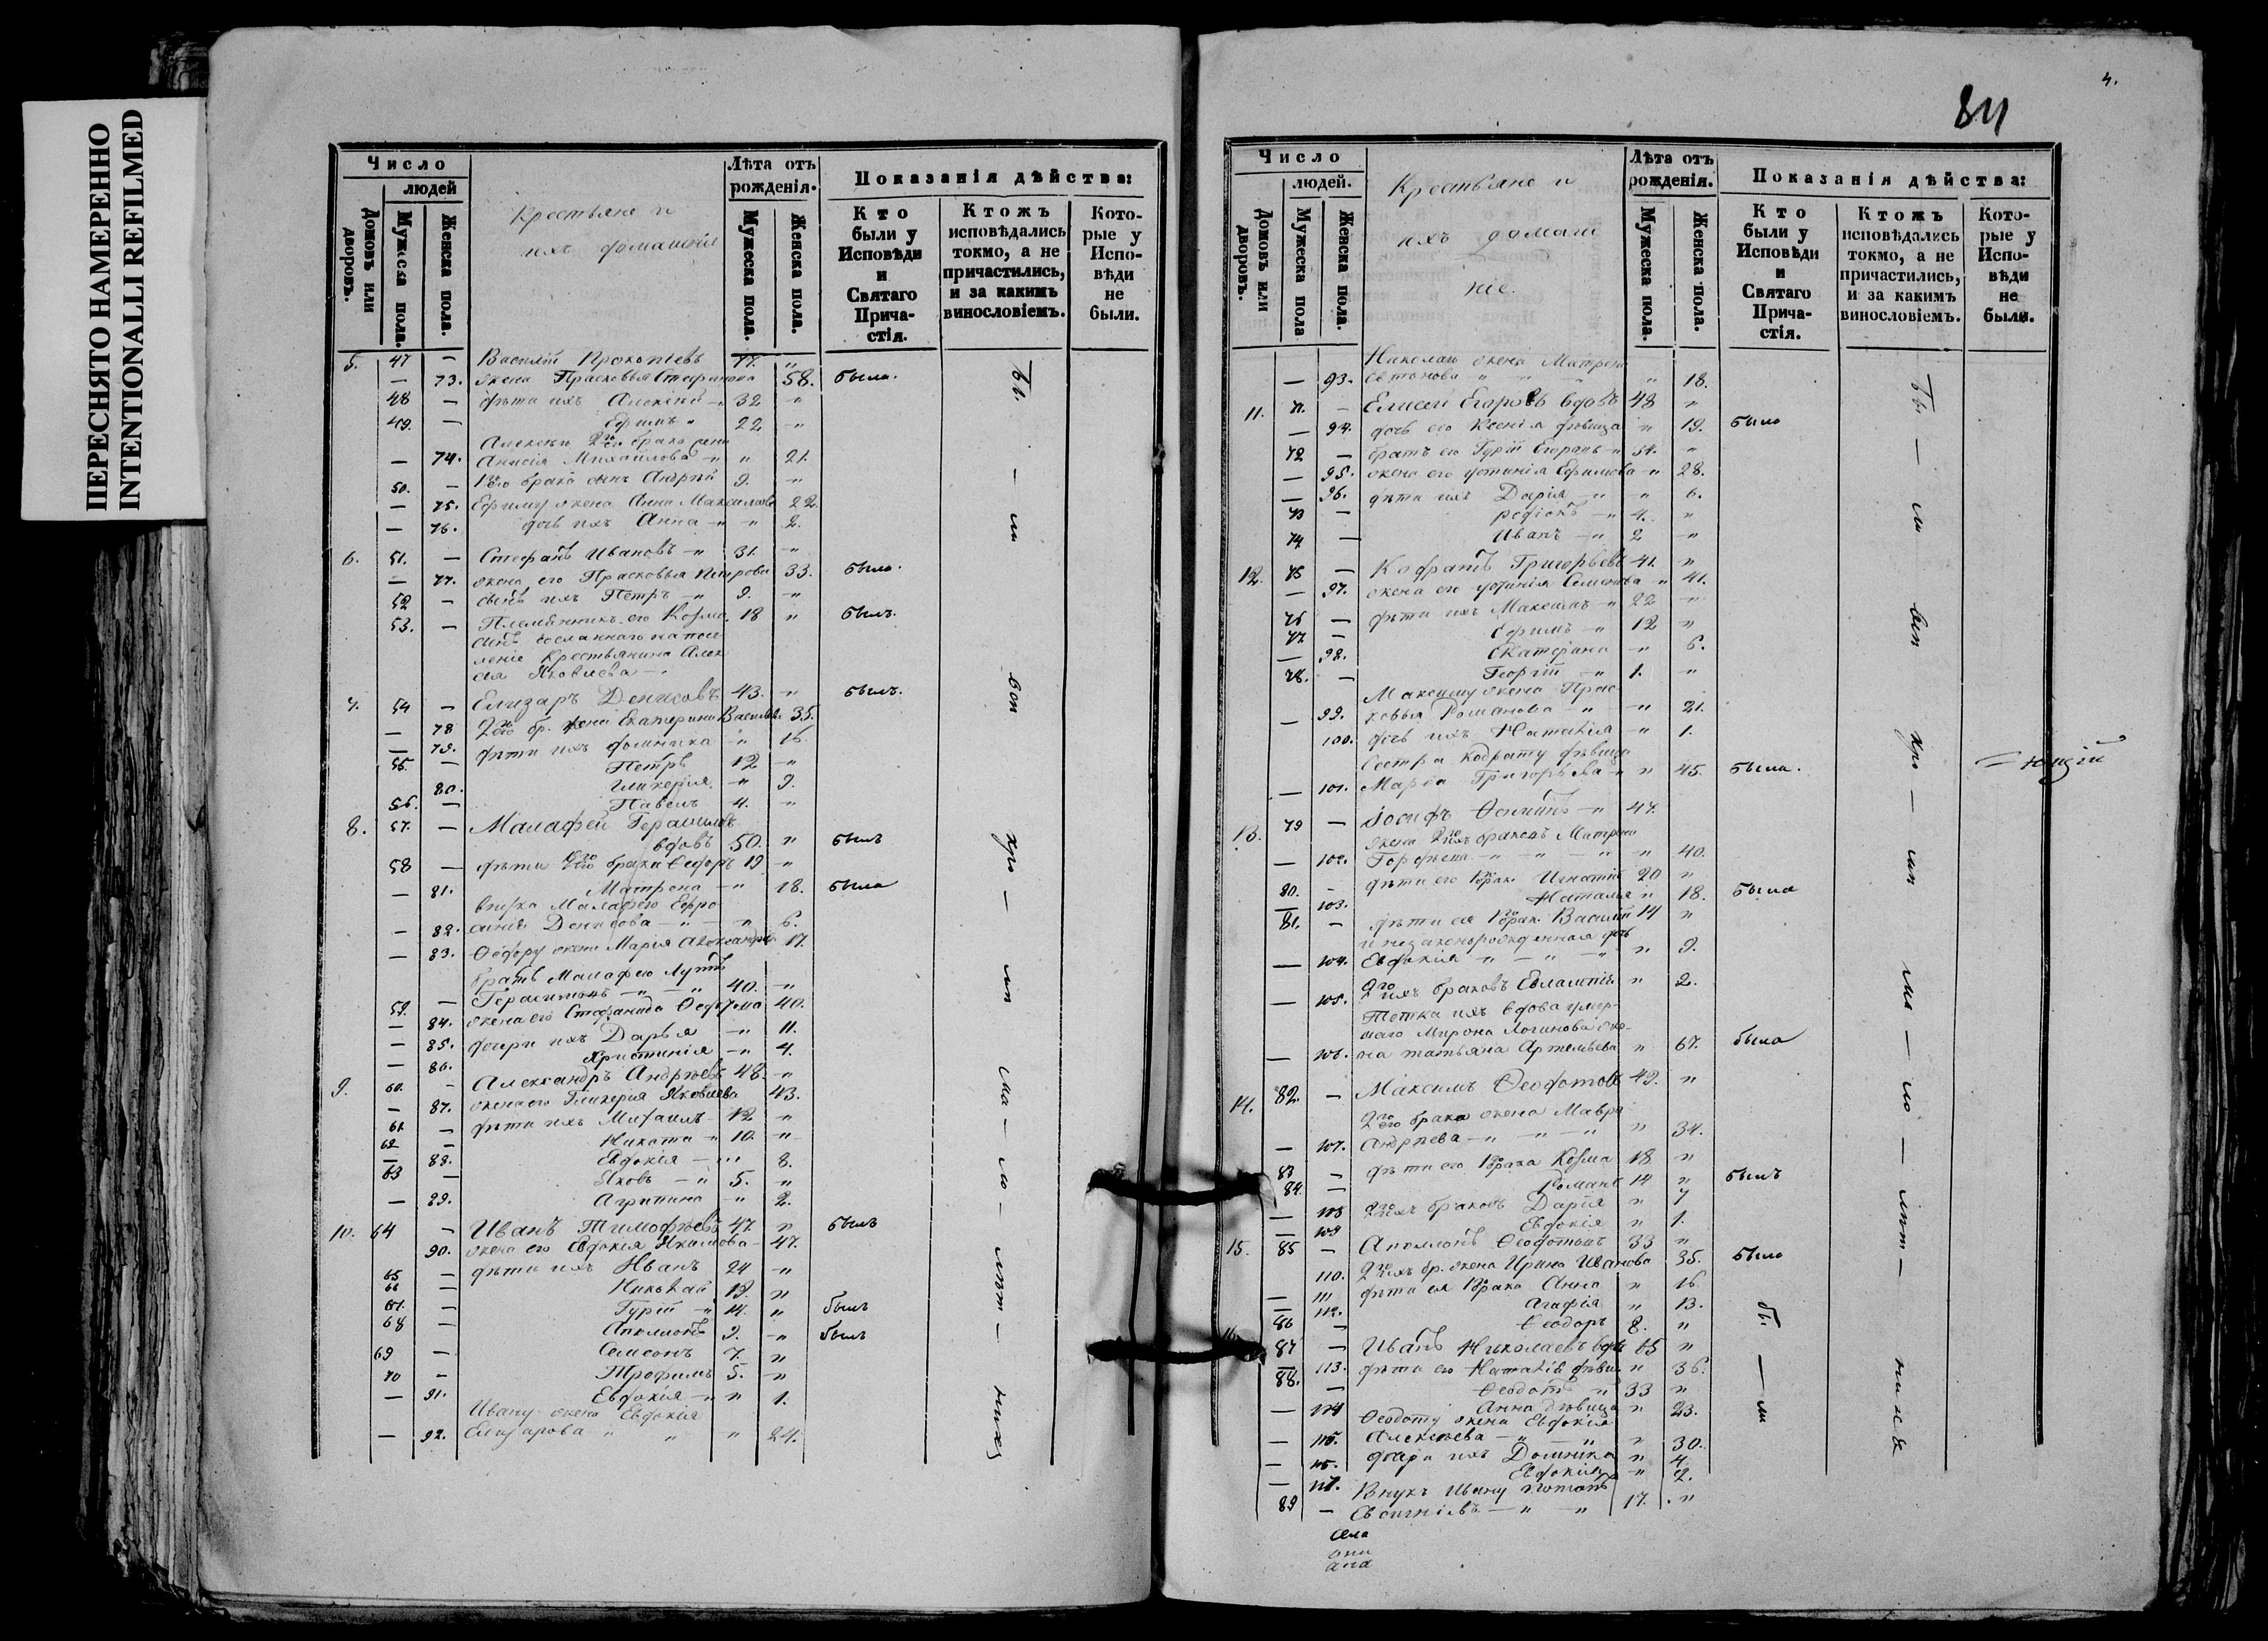 ПЕРЕСНЯТО НАМЕРЕННО
INTENTIONALLI REFILMED
Число
людей
Домовъ или дворовъ.
Мужеска пола.
Женска пола.
Крестьяне и
ихъ домашніе
Лѣта отъ рожденія.
Мужеска пола.
Женска пола.
Показанія дѣйства:
Кто были у Исповѣди и Святаго Прича-стія.
Ктожъ исповѣдались токмо, а не причастились, и за какимъ винословіемъ.
Кото-рые у Испо-вѣди не были.
5. 47 — Василій Прокопіевъ 77. "
— 73. жена Прасковья Стефанова 58. была.
48 — дѣти ихъ Алексѣй — 32 "
49. — Ефимъ " 22 "
Алексѣя 2го брака жена
— 74. Анисія Михайлова — " " 21.
50. — 1го брака сынъ Андрей 9. "
— 75. Ефиму жена Анна Максимова 22
— 76. дочь ихъ Анна — " " 2.
6. 51. — Стефанъ Ивановъ — " 31. "
— 77. жена его Прасковья Петрова 33. была.
52 — сынъ ихъ Петръ — " 9. "
53. — Племянникъ его Козма 18 " былъ.
сынъ сосланнаго на посе
леніе крестьянина Алек
сѣя Яковлева —
7. 54 — Елизаръ Денисовъ 43. " былъ.
— 78 2го бр. жена Екатерина Васильева 35.
— 79. дѣти ихъ Домника " 16.
55. — Петръ 12 "
80. Гликерія " 9.
56. — Павелъ 4. "
8. 57. — Малафей Герасимовъ
вдовъ 50. " былъ
58 — дѣти 1го брака Ѳеодоръ 19 "
— 81. Матрона — " 18. была
внучка Малафею Евфро
— 82. синія Денисова — " — " 6.
— 83. Ѳеодору жена Марія Александрова 17.
братъ Малафею Лупъ
59. — Герасимовъ — " — " 40. "
— 84. жена его Стефанида Ѳеодорова 40.
— 85. дочери ихъ Дарья — " 11.
— 86. Христинія — " 4.
9. 60. — Александръ Андреевъ 48. "
— 87. жена его Гликерія Яковлева 43.
61. — дѣти ихъ Михаилъ 12 "
62 — Никита " 10. "
— 88. Евдокія — " 8.
63 — Яковъ — " 5. "
— 89. Агрипина — " 2.
10. 64 — Иванъ Тимофеевъ 47. " былъ
90. жена его Евдокія 47.
65 — дѣти ихъ Иванъ 24 "
66 — Николай 19. "
67. — Гурій — " 14. " былъ
68 — Аполлонъ 9. " былъ
69 — Самсонъ 7. "
70 — Трофимъ 5. "
— 91. Евдокія — " " 1.
Ивану жена Евдокія
— 92. Елизарова " " " 24.
4.
84
Число
людей.
Домовъ или дворовъ.
Мужеска пола
Женска пола.
Крестьяне и
ихъ домаш
ніе.
Лѣта отъ рожденія.
Мужеска пола.
Женска пола.
Показанія дѣйства:
Кто были у Исповѣди и Святаго Прича-стія.
Ктожъ исповѣдались токмо, а не причастились, и за какимъ винословіемъ.
Кото-рые у Испо-вѣди не были.
Николаю жена Матрена
— 93. " 18.
11. 71. — Елисей Егоровъ вдовъ 48 "
— 94. дочь его Ксенія дѣвица " 19. была
72 — братъ его Гурій Егоровъ "
— 95. жена его Устинія Ефимова " 28.
— 96. дѣти ихъ Дарія — " " 6.
73 — Родіонъ — " 4. "
74 — Иванъ — " 2 "
12. 75 — Кодратъ Григорьевъ 41. "
— 97. жена его Устинія Семенова " 41.
76 — дѣти ихъ Максимъ — " 22 "
77 — Ефимъ — " 12 "
— 98. Екатерина " 6.
78. — Георгій — " 1. "
Максиму жена Прас
— 99. ковья Романова — " " 21.
100. дочь ихъ Наталія — " 1.
Сестра Кодрату дѣвица
— 101. Марѳа Григорьева " " 45. была.
13. 79 — Іосифъ — " 47.
жена 2хъ браковъ Матрена
— 102. " 40.
80. — дѣти его 1го брак. Игнатій 20 "
— 103. Наталья " 18. была
81. — дѣти ея 1го брак. Василій 14 "
и незаконорожденная дочь
— 104. Евдокія " — " — " " 9.
— 105. 2хъ браковъ Евлампія " 2.
Тетка ихъ вдова умер
шаго Мирона Логинова же
— 106. на Татьяна Артемьева " 67. была
14. 82. — Максимъ Ѳеофотовъ 49. "
2го брака жена Мавра
— 107. Андреева — " — " — " " 34.
83 — дѣти его 1го брака Козма 18 "
84. — Романъ 14 " былъ
— 108 2хъ браковъ Дарія " 7
— 109 Евдокія " 1.
15. 85 — Аполлонъ Ѳеофотовъ 33 "
110. 2хъ бр. жена Ирина Иванова 35. была
— 111 дѣти ея 1го брака Анна " 16
— 112. Агафія " 13.
86 — Ѳеодоръ 8. "
16. 87 — Иванъ Николаевъ вдов. 65 "
— 113. дѣти его Наталія дѣвица " 36.
88. — Ѳеодотъ " 33 "
— 114 Анна дѣвица " 23.
Ѳеодоту жена Евдокія
— 115. Алексѣева — " — " " 30.
— 116. дочери ихъ Домника " 4.
— 117. Евдокія " 2.
Внукъ Ивану Потапъ
89 — Евсигніевъ — " — " 17. "